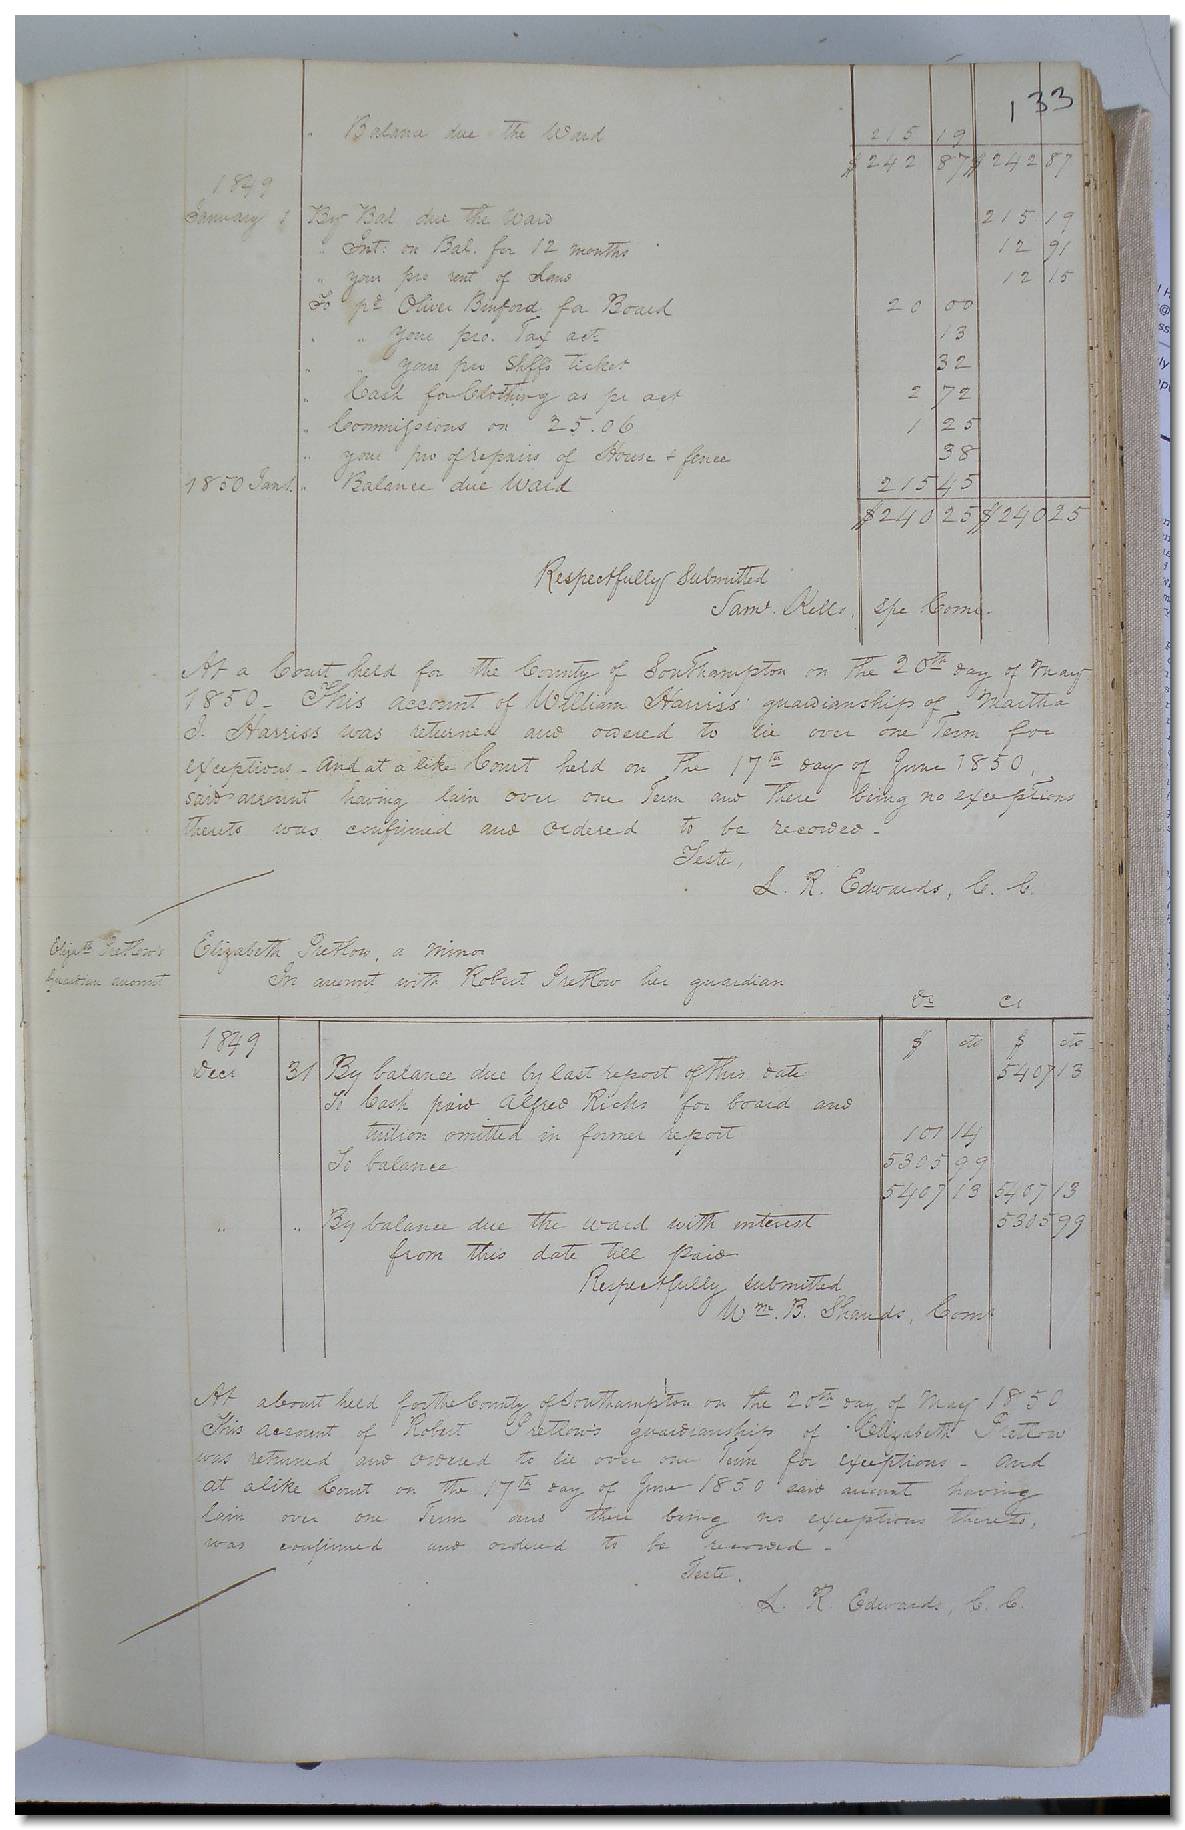 133
" Balance due the Ward 215 19
$242 87 $242 87
1849
January 1 By Bal due the Ward 215 19
" Int: on Bal. for 12 months 12 91
" your pro rent of Land 12 15
To pd Oliver Binford for Board 20 00
" " your pro. Tax act 13
" " your pro Shffs ticket 32
" Cash for Clothing as pr act 2 72
" Commissions on 25.06 1 25
" your pro of repairs of House + fence 38
1850 Jany 1. " Balance due Ward 215 45
$240 25 $240 25
Respectfully Submitted
Saml. Kello, Spe Comr.
At a Court held for the County of Southampton on the 20th day of May
1850 - This account of William Harriss' guardianship of Martha
J. Harriss was returned and ordered to lie over one Term for
exceptions - And at a like Court held on the 17th day of June 1850,
said account having lain over one Term and there being no exceptions
thereto was confirmed and ordered to be recorded -
Teste,
L. R. Edwards, C. C.
Elizath Pretlow's
Guardian account
Elizabeth Pretlow, a minor
In account with Robert Pretlow her guardian
Dr Cr
1849 $ cts $ cts
Decr 31 By balance due by last report of this date 5407 13
To Cash paid Alfred Ricks for board and
tuition omitted in former report 101 14
To balance 5305 99
5407 13 5407 13
" " By balance due the ward with interest 5305 99
from this date till paid
Respectfully submitted
Wm. B. Shands, Comr
At a Court held for the County of Southampton on the 20th day of May 1850
This account of Robert Pretlow's guardianship of Elizabeth Pretlow
was returned and ordered to lie over one Term for exceptions - And
at a like Court on the 17th day of June 1850 said account having
lain over one Term and there being no exceptions thereto,
was confirmed and ordered to be recorded -
Teste.
L. R. Edwards, C. C.